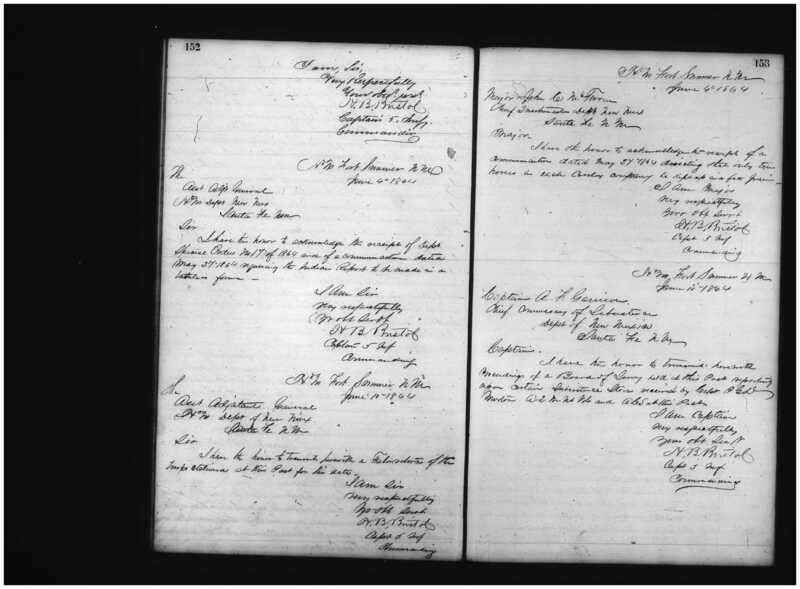 152
I am, Sir,
Very Respectfully
Your obt servt
H. B. Bristol
Captain 5 Infy
Commanding
Hd Qrs Fort Sumner N Mex
June 4th 1864
The
Asst Adjt General
Hd Qrs Dept New Mex
Santa Fe NM
Sir
I have the honor to acknowledge the receipt of Dept
Special Orders No 17 of 1864 and of a communication dated
May 27 1864 requiring the Indian Report to be made in a
tabular form
I Am Sir
very respectfully
Yr obt Servt
H B Bristol
Captain 5 Inf
Commanding
Hd Qrs Fort Sumner N Mex
June 1864
The
Asst Adjutant General
Hd Qrs Dept of New Mex
Santa Fe N M
Sir
I have the honor to transmit herewith a of the
troops stationed at this Post for this date
I Am Sir
very respectfully
Yr obt Servt
H. B. Bristol
Capt 5 Inf
Commanding
153
Hd Qrs Fort Sumner N Mex
June 4th 1864
Major John C
Chief Quartermaster Dept New Mex
Santa Fe N M
Major
I have the honor to acknowledge the receipt of a
communication dated May 27 1864 directing that only two
horses in each Cavalry company be kept
I Am Major
very respectfully
Your obt Servt
H. B. Bristol
Capt 5 Inf
Commanding
Hd Qrs Fort Sumner N M
June 1864
Captain A. F. Garrison
Chief Commissary of Subsistence
Dept of New Mexico
Santa Fe N M
Captain
I have the honor to transmit herewith
Proceedings of a Board of Survey held at this Post reporting
upon certain Subsistence Stores received by Capt
Morton at this Post
I Am Captain
very respectfully
Your obt Servt
H. B. Bristol
Capt 5 Inf
Commanding